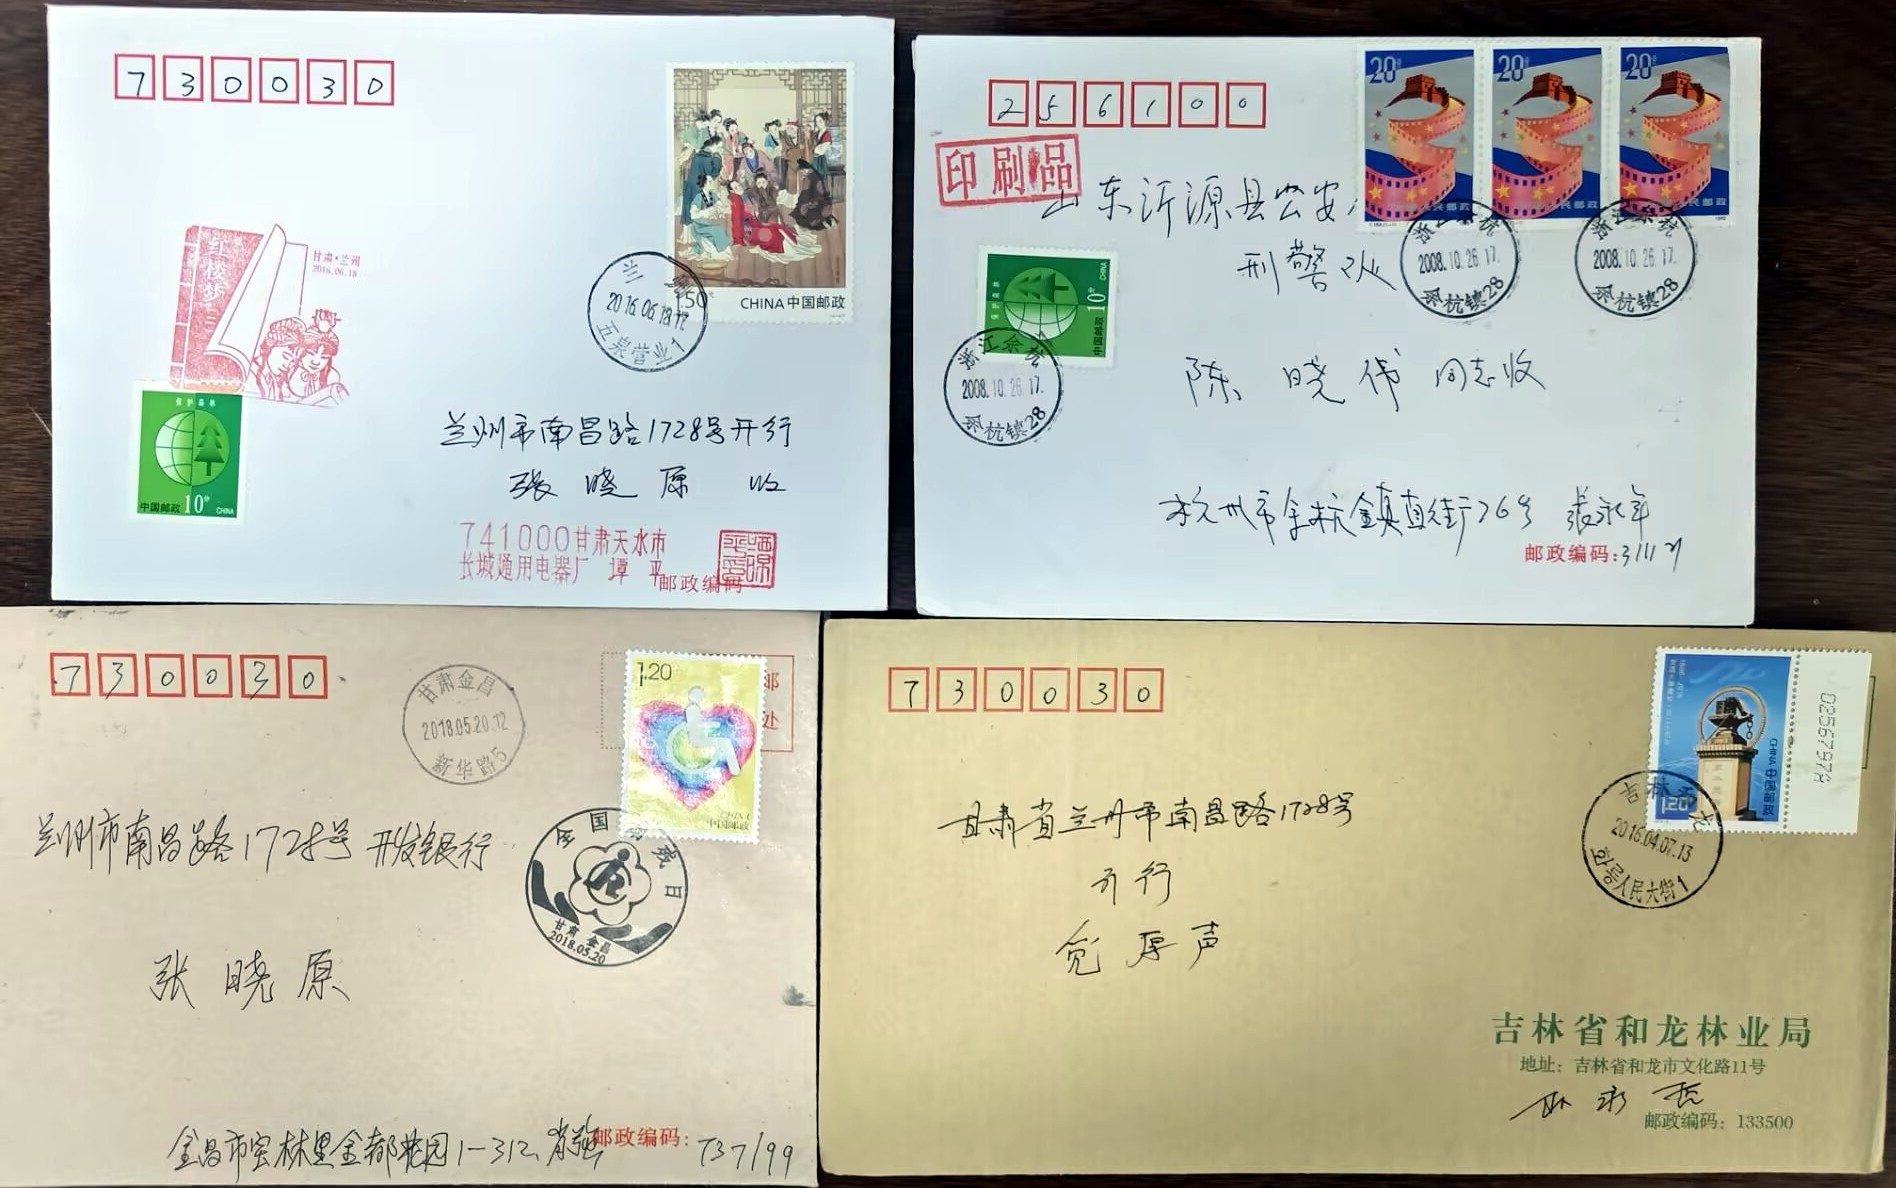 730030
红楼梦
甘肃·兰州
2016.06.18
50
CHINA中国邮政
兰
2016.06.18.17
五泉营业1
保护森林
中国邮政10分
CHINA
兰州市南昌路1728号开行
张晓原 收
741000甘肃天水市
长城通用电器厂 谭 平
邮政编码
256100
印刷品
山东沂源县公安
刑警队
陈晓伟 同志收
20分
20分
20分
保护森林
中国邮政10分
CHINA
浙江余杭
2008.10.26.17
余杭镇28
浙江余杭
2008.10.26.17
余杭镇28
浙江余杭
2008.10.26.17
余杭镇28
杭州市余杭鎮直街76号 张永年
邮政编码:311121
730030
甘肃金昌
2018.05.20.12
新华路5
1.20
CHINA
中国邮政
邮
处
全国助残日
甘肃 金昌
2018.05.20
兰州市南昌路1728号 开发银行
张晓原
金昌市宝林里金都花园1-312
邮政编码: 737199
730030
CHINA 中国邮政
02567974
吉林和龙
2016.04.07.13
화룡人民大街1
甘肃省兰州市南昌路1728号
开行
厚声
吉林省和龙林业局
地址：吉林省和龙市文化路11号
邮政编码：133500